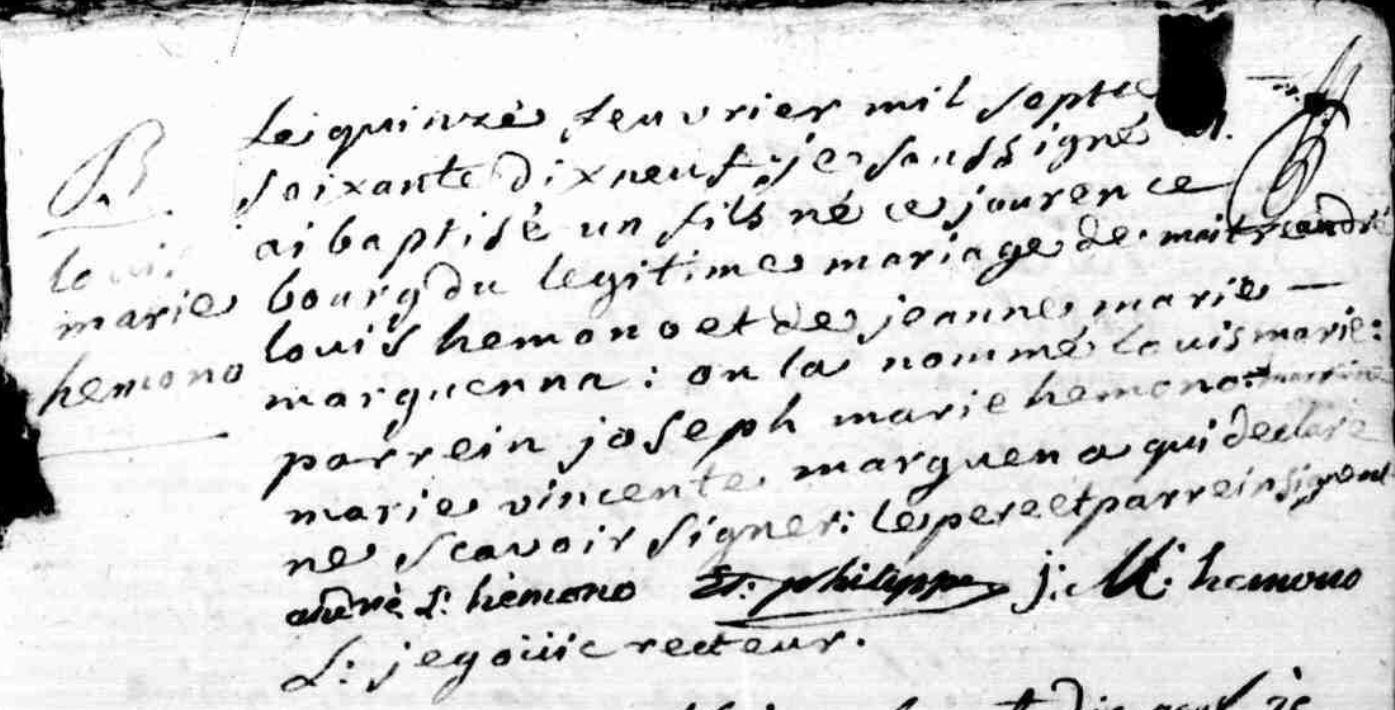 B
louis
marie
hemono
Le quinze feuvrier mil sept ce
soixante dix neuf: je soussigné
ai baptisé un fils né ce jour en ce
bourg du legitime mariage de maitre andré
louis hemono et de jeanne marie —
marguenna: on la nommé louis marie:
parrein joseph marie hemono: marrine
marie vincente marguena qui declare
ne scavoir signer: le pere et parrein signent
andré L: hemono St: philippe j: M: hemono
L: jegoüic recteur.